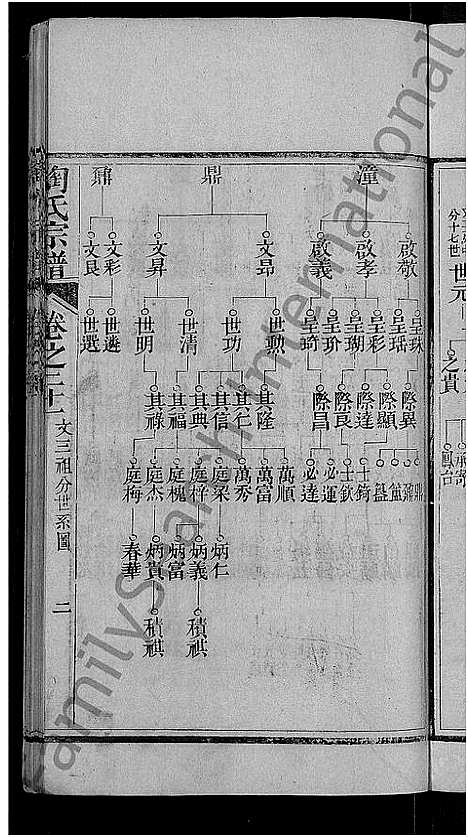 分十七世
世元
之貴
鳳台
潼
鼎
鼐
啟敬
啟孝
啟義
文昂
文昇
文彩
文良
呈珠
呈瑶
呈彩
呈瑚
呈玠
呈琦
世勲
世功
世清
世明
世遴
世選
際異
際顯
際達
際良
際昌
其隆
其仁
其信
其興
其福
其祿
士錡
士欽
必運
必達
萬順
萬富
萬秀
庭梁
庭梓
庭槐
庭杰
庭梅
炳仁
炳義
炳富
炳貴
春華
積祺
積祺
陶氏宗譜
卷之二十一
文三祖分世系圖
二
FamilySearch International